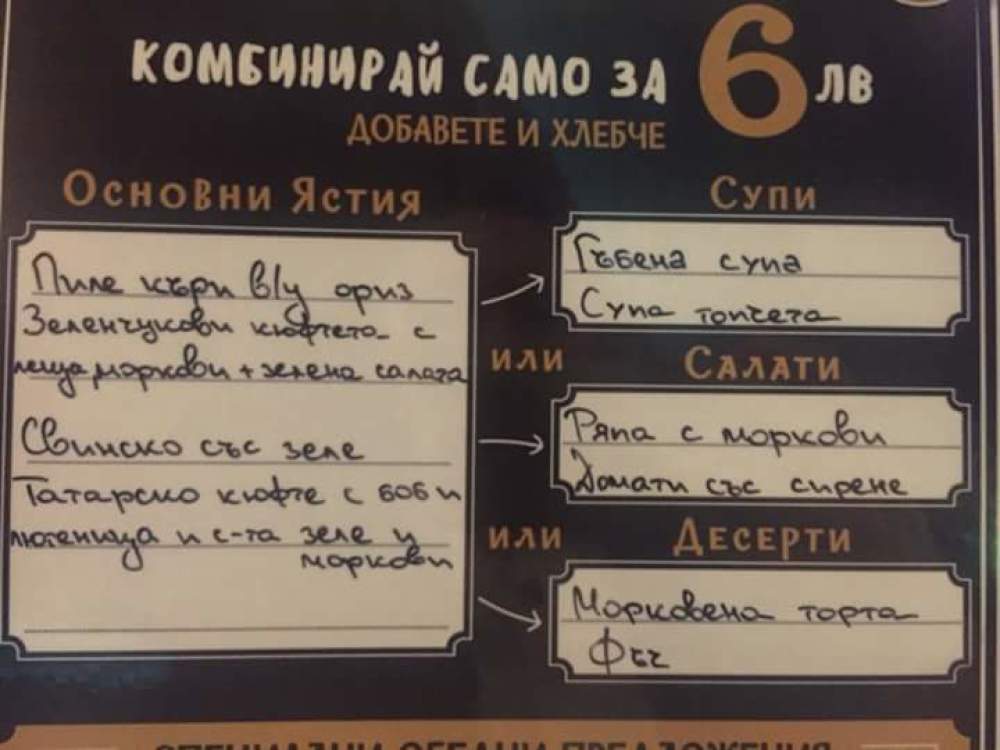 КОМБИНИРАЙ САМО ЗА 6 ЛВ
ДОБАВЕТЕ И ХЛЕБЧЕ
Основни Ястия
Пиле къри в/у ориз
Зеленчукови кюфтета с
леща, моркови + зелена салата
Свинско със зеле
Татарско кюфте с боб и
лютеница и с-та зеле и
моркови
Супи
Гъбена супа
Супа топчета
или
Салати
Ряпа с моркови
Домати със сирене
или
Десерти
Морковена торта
Фъч